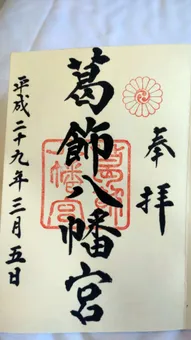 奉拝
葛飾八幡宮
葛飾八幡宮
平成二十九年三月五日